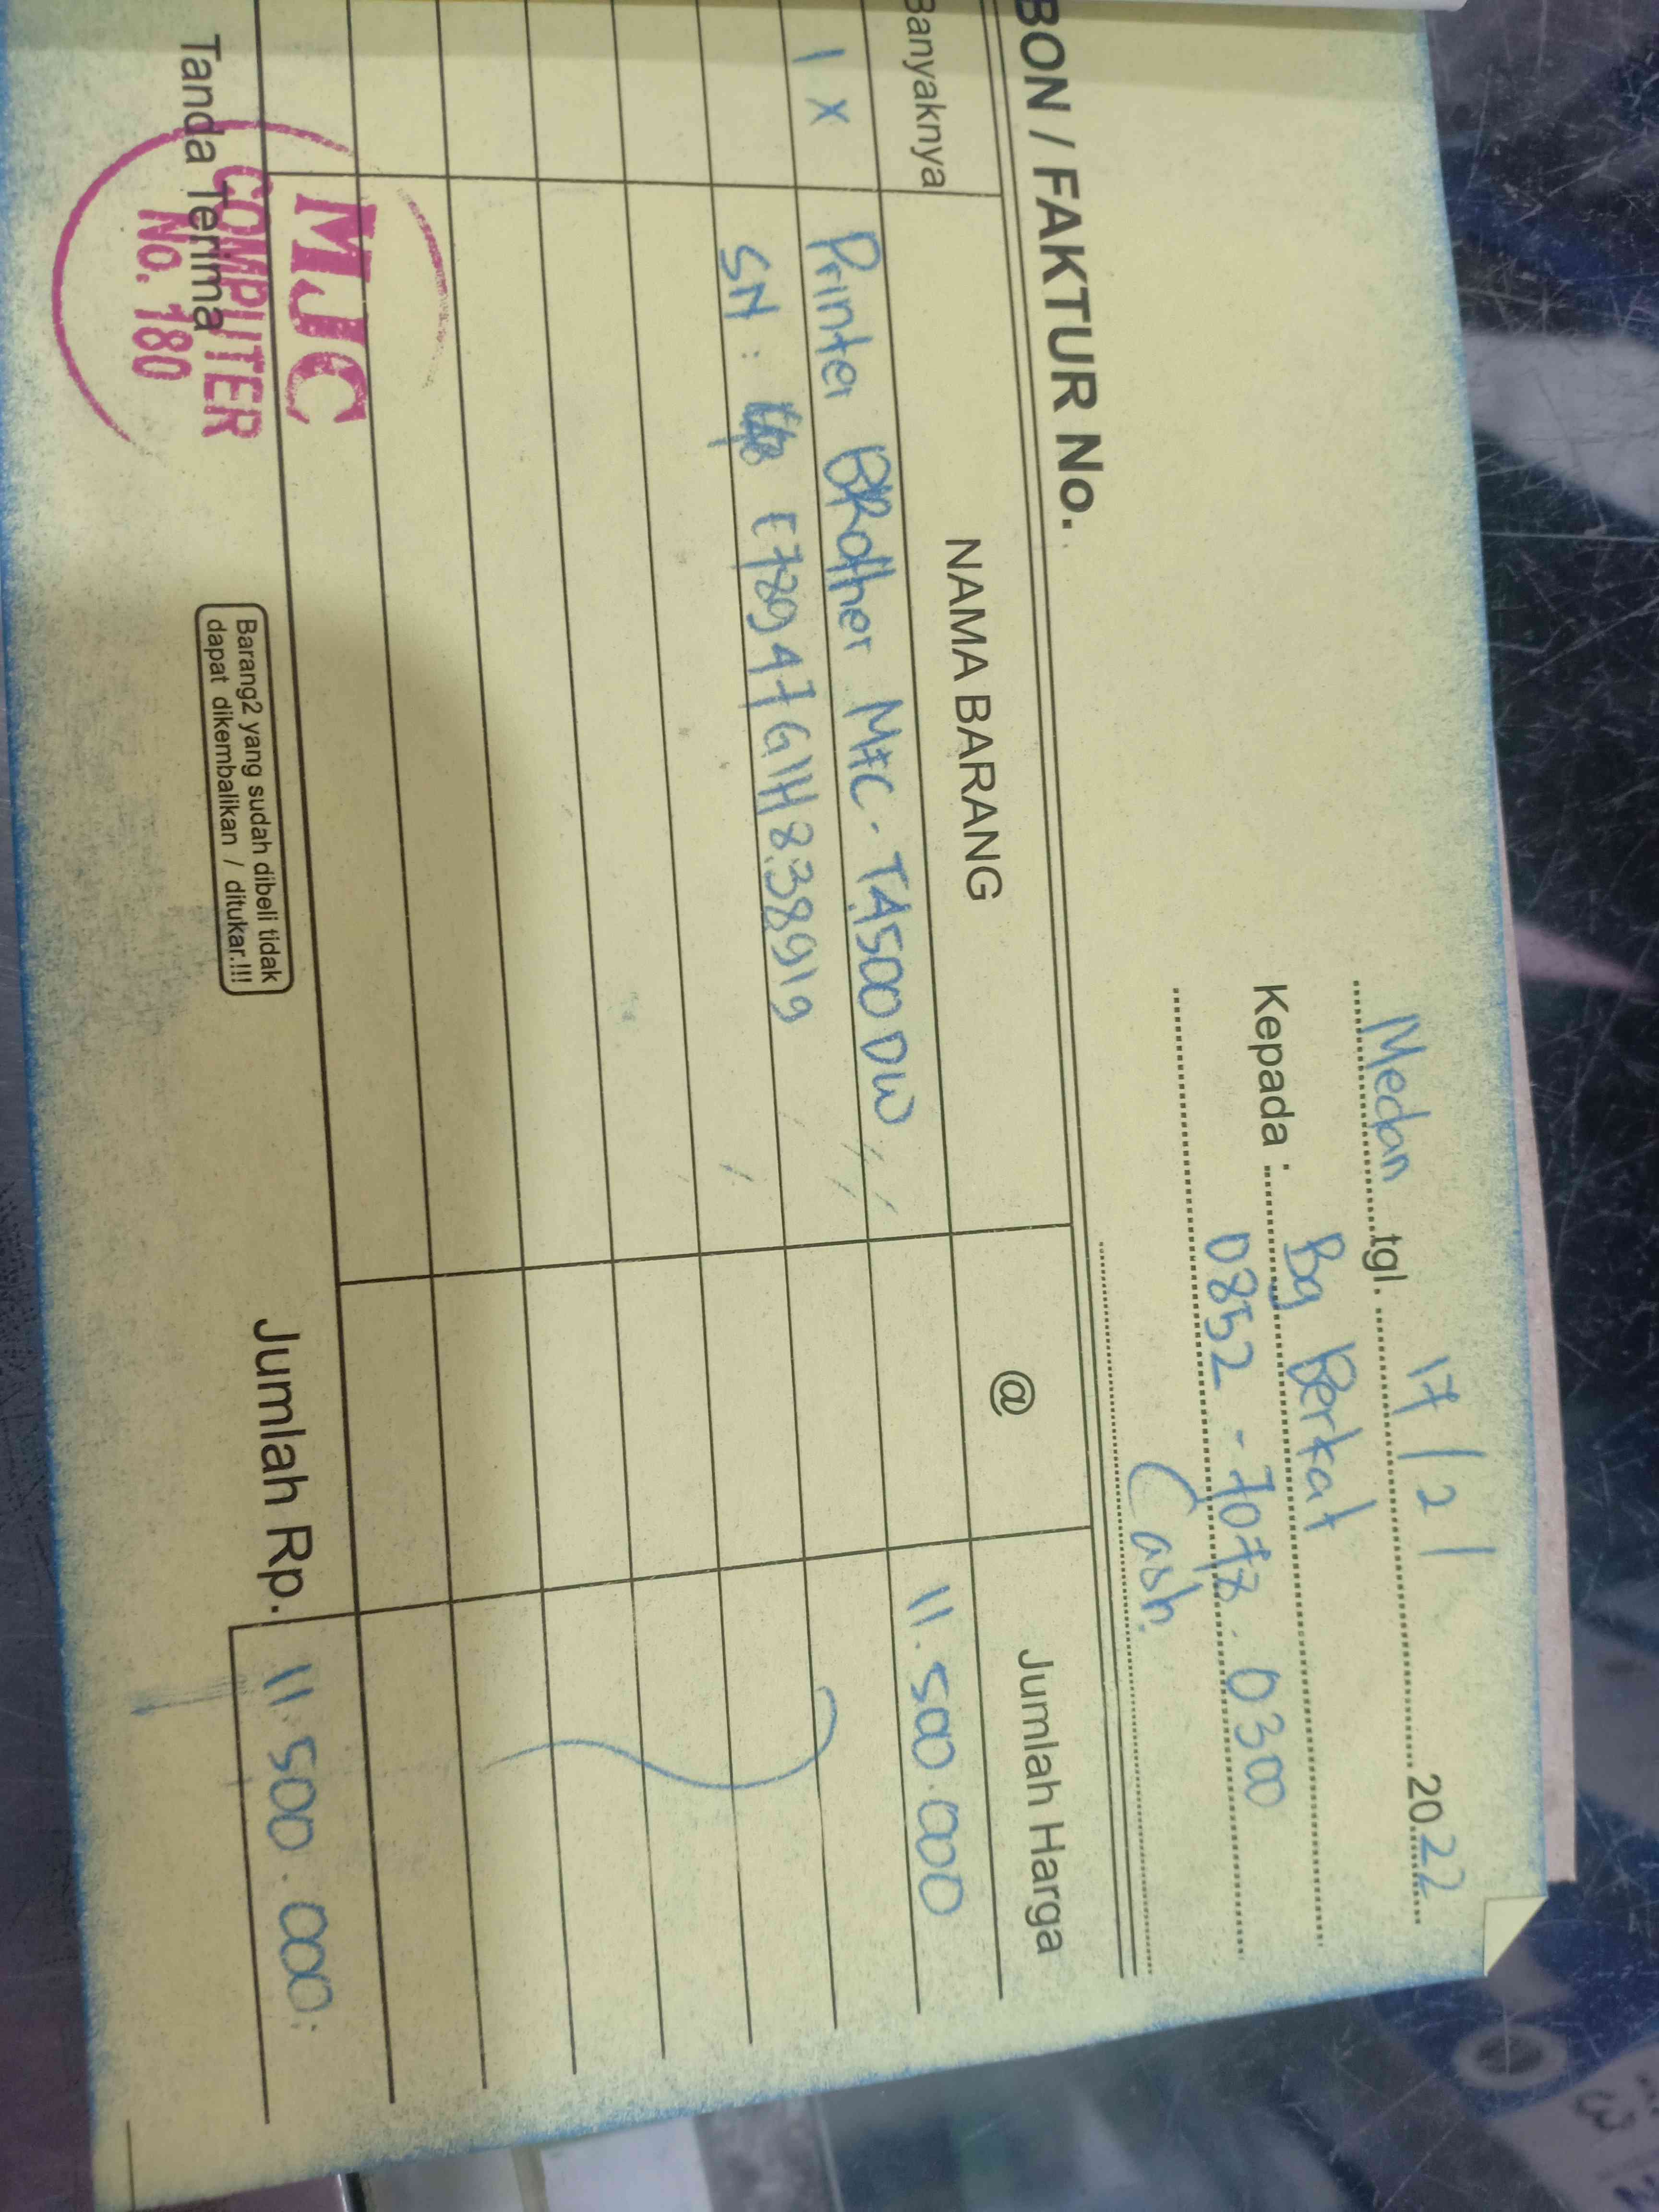 Medan tgl. 17 / 2 / 2022
Kepada : Bg Berkat
0852 - 7078 . 0300
Cash.
BON / FAKTUR No.
Banyaknya NAMA BARANG @ Jumlah Harga
1 x Printer BRother MFC - TA500 DW 11.500.000
SN : E78947G1H838919
Tanda Terima
MJC
COMPUTER
No. 180
Barang2 yang sudah dibeli tidak
dapat dikembalikan / ditukar.!!!
Jumlah Rp. 11.500.000